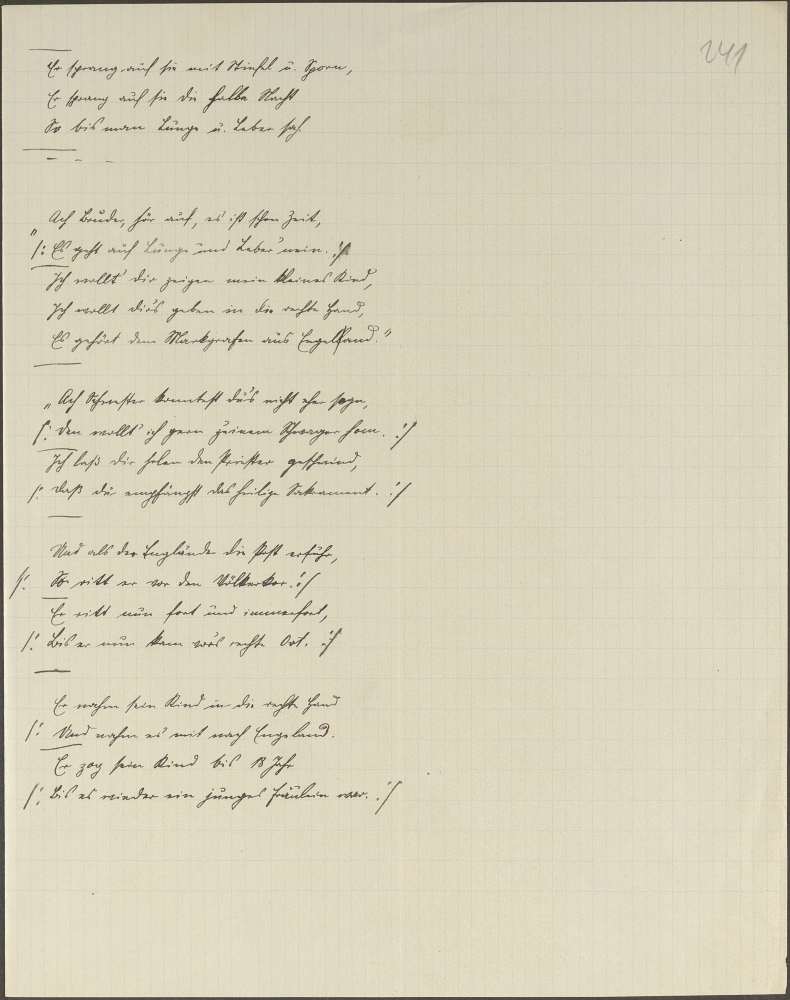 241
Er sprang auf sie mit Stiefel u. Sporn,
Er sprang auf sie die halbe Nacht
So bis man Lunge u. Leber sah.
– – –
„Ach Bruder, hör auf, es ist schon Zeit,
/: Es geht auf Lunge und Leber nein. :/
Ich wollt' dir zeigen mein kleines Kind,
Ich wollt dirs geben in die rechte Hand,
Es gehört dem Markgrafen aus Engelland."
„Ach Schwester konntest du's nicht eher sagn,
/: Den wollt' ich gern zu einem Schwager han. :/
Ich laß dir holen den Priester geschwind,
/: Daß du empfängst das heilige Sakrament. :/
Und als der Englände die Post erfuhr,
/: So ritt er vor den :/
Er ritt nun fort und immerfort,
/: Bis er nun kam vor's rechte Ort. :/
Er nahm sein Kind in die rechte Hand
/: Und nahm es mit nach Engeland.
Er zog sein Kind bis 18 Jahr
/: Bis es wieder ein junges Fräulein war. :/